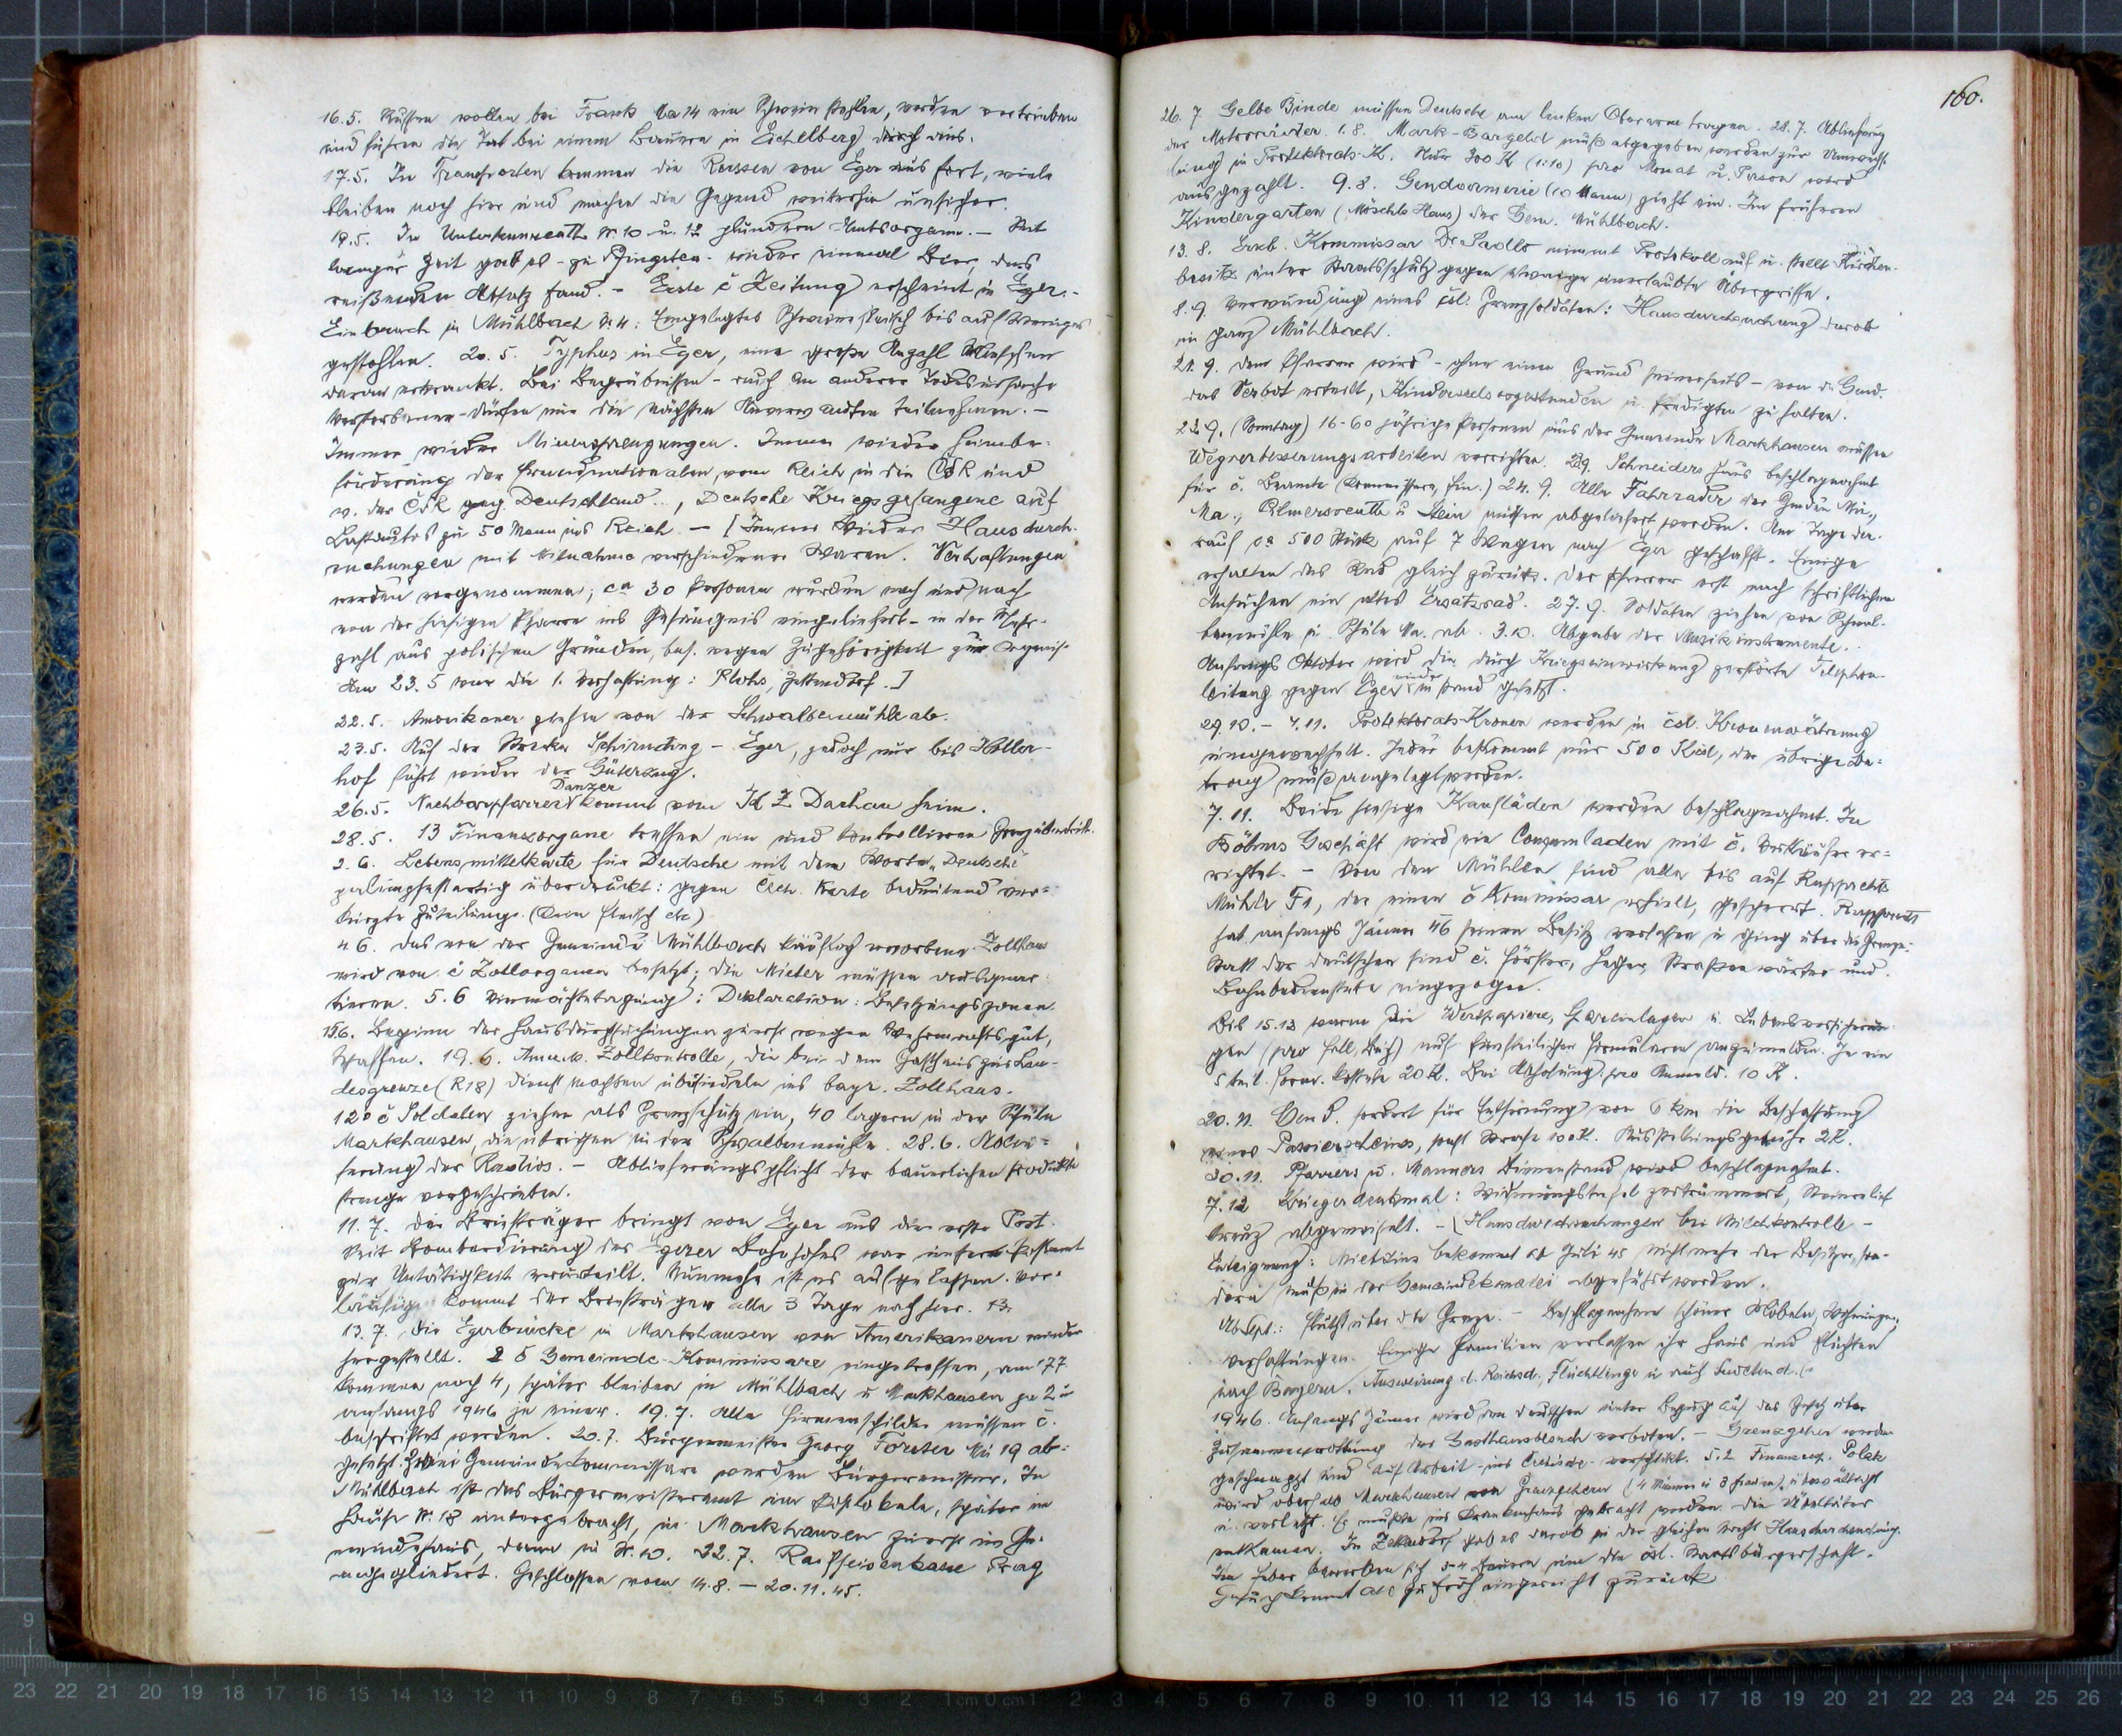 16.5. Russen wollen bei Frank Ma 14 ein Schwein stehlen, werden vertrieben
und führen die Tat bei einem Bauern in Eichelberg durch aus.
17.5. In Transporten kommen die Russen von Eger aus fort, viele
bleiben noch hier und machen die Gegend weiterhin unsicher.
19.5. In Unterkunreuth N. 10 u. 12 plündern Amtsorgane. – Seit
langer Zeit gab es – zu Pfingsten – wieder einmal Bier, das
reißenden Absatz fand. – Erste č Zeitung erscheint in Eger. –
Einbruch in Mühlbach N. 4: Eingelegtes Schweinefleisch bis auf Weniges
gestohlen. 20.5. Typhus in Eger, eine große Anzahl Menschen
daran erkrankt. Bei Begräbnissen – auch an anderer Todesursache
Verstorbener – dürfen nur die nächsten Anverwandten teilnehmen. –
Immer wieder Minensprengungen. Immer wieder Heimbe-
förderung der Fremdnationalen, vom Reich in die ČSR und
v. der ČSR geg. Deutschland .., Deutsche Kriegsgefangene auf
Lastautos zu 50 Mann ins Reich – [Immer wieder Hausdurch-
suchungen mit Mitnahme verschiedener Waren. Verhaftungen
werden vorgenommen; ca 30 Personen wurden nach und nach
von der hiesigen Pfarre ins Gefängnis eingeliefert – in der Mehr-
zahl aus politischen Gründen, bes. wegen Zugehörigkeit zur
Am 23.5 war die 1. Verhaftung: Zettendorf.]
22.5. Amerikaner ziehen von der Schwalbenmühle ab.
23.5. Auf der Strecke Schirnding – Eger, jedoch nur bis
hof fährt wieder der Güterzug.
Danzer
26.5. Nachbarpfarrer kommt vom KZ Dachau heim.
28.5. 13 Finanzorgane treffen ein und kontrollieren Grenzübertritt.
2.6. Lebensmittelkarte für Deutsche mit dem Worte „Deutsche“
palimpsestartig überdruckt: gegen čech. Karte bedeutend ver-
kürzte Zuteilungen (kein Fleisch etc)
4 6. Das von der Gemeinde Mühlbach käuflich erworbene Zollhaus
wird von č Zollorganen besetzt; die Mieter müssen
5.6 Viermächtetagung: Deklaration: Besetzungszonen.
15.6. Beginn der Hausdurchsuchungen zuerst wegen Wehrmachtsgut,
Waffen. 19.6. Amerik. Zollkontrolle, die bei dem Gasthaus zur Lan-
desgrenze (R18) Dienst machten übersiedeln ins bayr. Zollhaus.
120 č Soldaten ziehen als Grenzschutz ein, 40 lagern in der Schule
Markhausen, die übrigen in der Schwalbenmühle. 28.6. Ablie-
ferung der Radios. – Ablieferungspflicht der bäuerlichen Produkte
strenge vorgeschrieben.
11.7. Der Briefträger bringt von Eger aus die erste Post.
Seit Bombardierung des Egerer Bahnhofes war unser Postamt
zur Untätigkeit verurteilt. Nunmehr ist es aufgelassen. Vor-
läufig kommt der Briefträger alle 3 Tage nach hier.
13.7. Die Egerbrücke in Markhausen von Amerikanern wieder
hergestellt. 2 č Gemeinde-Kommissare eingetroffen, am 17.7.
kommen noch 4, später bleiben in Mühlbach u Markhausen je 2 u
anfangs 1946 je einer. 19.7. Alle Firmenschilder müssen č.
beschriftet werden. 20.7. Bürgermeister Georg Förster Mü 19 ab-
gesetzt. Zwei Gemeindekommissare werden Bürgermeister. In
Mühlbach ist das Bürgermeisteramt im, später im
Hause N. 18 untergebracht, in Markhausen zuerst im Ge-
meindehaus, dann in N. 10. 22.7. Raiffeisenkasse Prag
angegliedert. Geschlossen vom 14.8. – 20.11.45.
160.
26.7 Gelbe Binde müssen Deutsche am linken Oberarme tragen. 28.7. Ablieferung
der Motorräder. 1.8. Mark-Bargeld muß abgegeben werden zur Umwechs-
lung in Protektorats-K. Nur 300 K (1:10) pro Monat u. Person wird
ausgezahlt. 9.8. Gendarmerie (10 Mann) zieht ein. Im früheren
Kindergarten (Möschls Haus) der Gem. Mühlbach.
13.8. Kommissar Dr nimmt Protokoll auf u. stellt Kirchen-
besitz unter Staatsschutz gegen etwaige unerlaubte Übergriffe.
8.9. Verwundung eines čsl. Grenzsoldaten: Hausdurchsuchung darob
in ganz Mühlbach.
21.9. dem Pfarrer wird – ohne einen Grund seinerseits – von d. Gend.
das Verbot erteilt, Kinderseelsorgestunden u. Predigten zu halten.
(Sonntag) 16-60 jährige Personen aus der Gemeinde Markhausen müssen
Wegverbesserungsarbeiten verrichten. Schneiders Haus beschlagnahmt
für č. Beamte (Kommissare, Fin.) 24.9. Alle Fahrräder der Gmden Mü.,
Ma., Palmersreuth u Stein müssen abgeliefert werden. Am Tage da-
rauf ca 500 Stück auf 7 Wagen nach Eger geschafft. Einige
erhalten das Rad gleich zurück. der Pfarrer erst nach schriftlichem
Ansuchen ein altes Ersatzrad. 27.9. Soldaten ziehen von Schwal-
benmühle u. Schule Ma. ab. 3.10. Abgabe der Musikinstrumente.
Anfangs Oktober wird die durch Kriegseinwirkung zerstörte Telephon-
leitung gegen Eger wieder in stand gesetzt.
29.10. – 4.11. Protektorats-Kronen werden in čsl. Kronenwährung
umgewechselt. Jeder bekommt nur 500 Kčsl, der übrige Be-
trag muß angelegt werden.
7.11. Beide hiesige Kaufläden werden beschlagnahmt. In
Böhms Geschäft wird ein Consumladen mit č. Verkäufer er-
richtet. – Von den Mühlen sind alle bis auf Rupprechts
Mühle, der einen č Kommissar erhielt, gesperrt. Rupprecht
hat anfangs Jänner 46 seinen Besitz verlassen u ging über die Grenze.
Statt der deutschen sind č. Förster, Heger, Straßenwärter und
Bahnbedienstete eingezogen.
Bis 15.12 waren die Wertpapiere, Spareinlagen u. Lebensversicherun-
gen (pro Fall) auf fünfteiligen Formularen anzumelden. Je ein
5 teil. Formr. kostete 20 K. Bei Abholung pro Anmeld. 10 K.
20.11. Gend. fordert für Entfernung von 6 km die Beschaffung
eines Passierscheines, sonst Strafe 100 K. Ausstellungsgebühr 2 K.
30.11. Pfarrers u. Manners Bienenstand wird beschlagnahmt.
7.12 Kriegerdenkmal: Widmungstafel zertrümmert, Steinrelief
Kreuz abgemeißelt. – (Hausdurchsuchungen bei Milchkontrolle –
Enteignung: Mietzins bekommt ab Juli 45 nicht mehr der Besitzer, son-
dern muß in der Gemeindekanzlei abgeführt werden.
Ab Sept.: Flucht über die Grenze. – Beschlagnahme schöner Möbeln, Wohnungen,
Verhaftungen. Einige Familien verlassen ihr Haus und flüchten
nach Bayern. Ausweisung d. Reichsd., Flüchtlinge u auch Sudetend.
1946. Anfangs Jänner wird den Deutschen unter Bezug auf das Gesetz über
Zusammenrottung der Gasthausbesuch verboten. – Grenzgeher werden
geschnappt und auf Arbeit – ins Čechische – verschickt. 5.2 Finanzorg. Polak
wird oberhalb Markhausen von Grenzgehern (4 Männer u 3 Frauen) überwältigt
u. verletzt. Er mußte ins Krankenhaus gebracht werden. Die Übeltäter
entkamen. In Zettendorf gab es darob in der gleichen Nacht Hausdurchsuchung.
Im Feber bewerben sich 3-4 Bauern um die čsl. Staatsbürgerschaft.
Gesuch kommt als zu früh eingereicht zurück